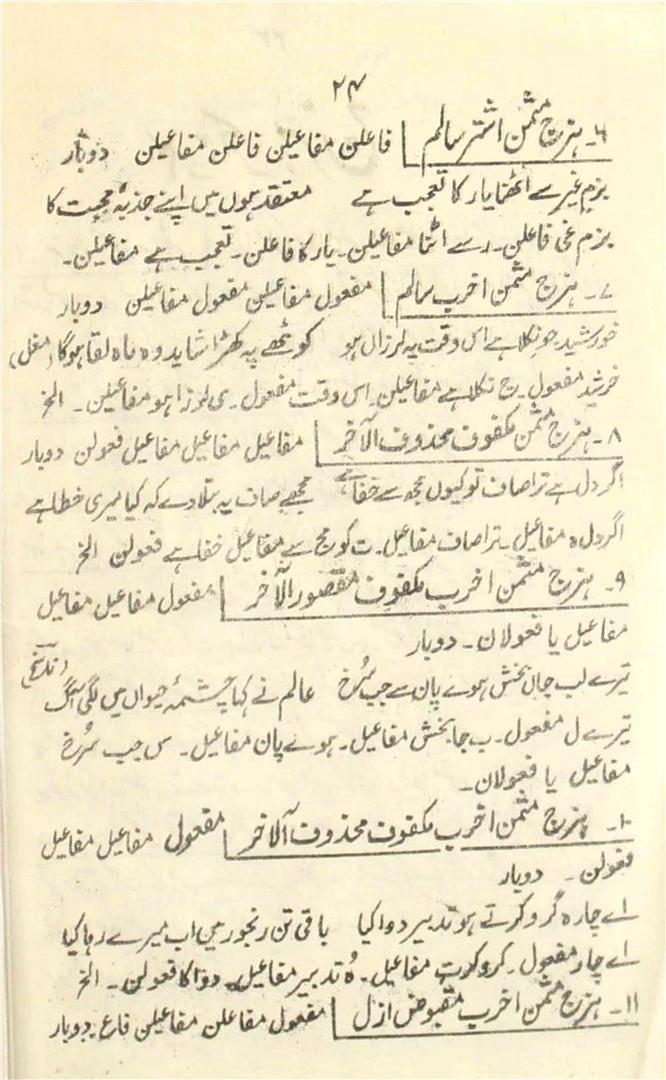 ۲۴
۶۔ ہزج مثمن اشتر سالم فاعلن مفاعیلن فاعلن مفاعیلن دوبار
بزم غیر سے اٹھنا یار کا تعجب ہے معتقد ہوں میں اپنے جذبۂ محبت کا
بزم غی فاعلن۔ رسے اٹنا مفاعیلن۔ یار کا فاعلن۔ تعجب ہے مفاعیلن۔
۷۔ ہزج مثمن اخرب سالم مفعول مفاعیلن مفعول مفاعیلن دوبار
خورشید جو نکلا ہے اس وقت یہ لرزاں ہو کوٹھے پہ کھڑا شاید وہ ماہ لقا ہوگا (مغل)
خرشید مفعول۔ ج نکلا ہے مفاعیلن۔ اس وقت مفعول۔ ی لرزا ہو مفاعیلن۔ الخ
۸۔ ہزج مثمن مکفوف محذوف الآخر مفاعیل مفاعیل مفاعیل فعولن دوبار
اگر دل ہے ترا صاف تو کیوں مجھ سے خفا ہے مجھے صاف یہ بتلا دے کہ کیا میری خطا ہے
اگر دل ہ مفاعیل۔ ترا صاف مفاعیل۔ ت کو مج سے مفاعیل خفا ہے فعولن الخ
۹۔ ہزج مثمن اخرب مکفوف مقصور الآخر مفعول مفاعیل مفاعیل
مفاعیل یا فعولان۔ دوبار
تیرے لب جاں بخش ہوے پان سے جب سُرخ عالم نے کہا چشمۂ حیواں میں لگی آگ (ناسخ)
تیرے ل مفعول۔ ب جا بخش مفاعیل۔ ہوے پان مفاعیل۔ س جب سُرخ
مفاعیل یا فعولان۔
۱۰۔ ہزج مثمن اخرب مکفوف محذوف آلاخر مفعول مفاعیل مفاعیل
فعولن۔ دوبار
اے چارہ گرو کرتے ہو تدبیر دوا کیا باقی تن رنجور میں اب میرے رہا کیا
اے چار مفعول۔ گرو کرت مفاعیل۔ ہُ تدبیر مفاعیل۔ دوا کا فعولن۔ الخ
۱۱۔ ہزج مثمن اخرب مقبوض ازل مفعول مفاعلن مفاعیلن فاع۔ دوبار